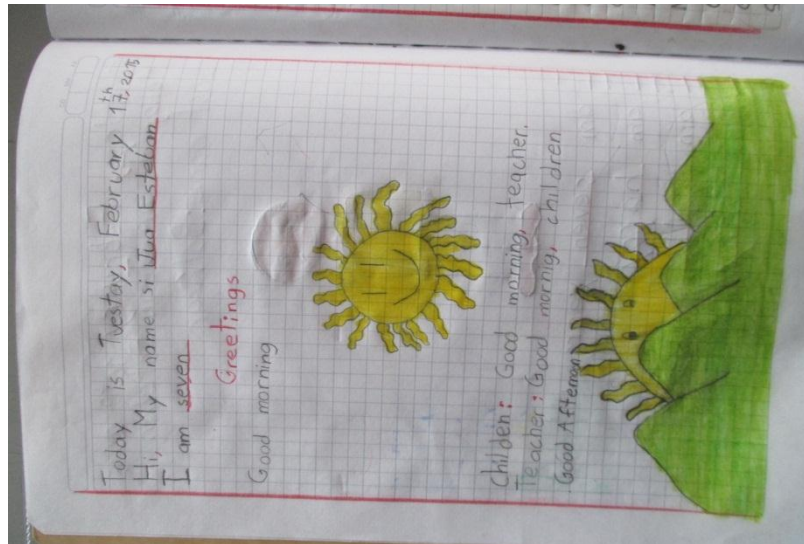 Today is Tuestay, February 17th, 2015
Hi, My name si Jua Esteban
I am seven
Greetings
Good morning
Childen: Good morning, teacher.
Teacher: Good mornig, children
Good Afternoon